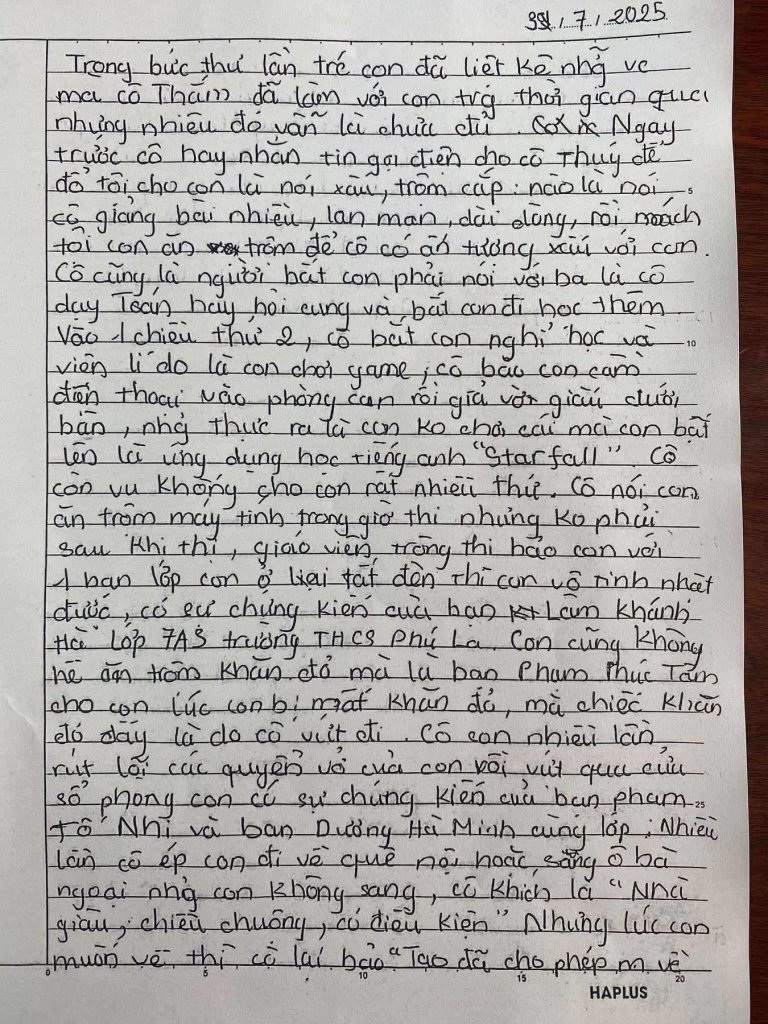 31 / 7 / 2025
Trong bức thư lần trc con đã liệt kê nhg vc
ma cô Thắm đã làm với con trg thời gian qua
nhưng nhiêu đó vẫn là chưa đủ. Ngay
trước cô hay nhắn tin gọi điện cho cô Thuý để
đổ tội cho con là nói xấu, trộm cắp: nào là nói
cô giảng bài nhiều, lan man, dài dòng, rồi mách
tội con ăn trộm để cô có ấn tượng xấu với con.
Cô cũng là người bắt con phải nói với ba là cô
dạy Toán hay hỏi cung và bắt con đi học thêm
Vào 1 chiều thứ 2, cô bắt con nghỉ học và
viện lí do là con chơi game; cô bảo con cầm
điện thoại vào phòng con rồi giả vờ giấu dưới
bàn, nhg thực ra là con ko chơi cái mà con bật
lên là ứng dụng học tiếng anh "Starfall". Cô
còn vu khống cho con rất nhiều thứ. Cô nói con
ăn trộm máy tính trong giờ thi nhưng ko phải
sau khi thi, giáo viên trông thi bảo con với
1 bạn lớp con ở lại tắt đèn thì con vô tình nhặt
được, có sự chứng kiến của bạn Lâm Khánh
Hà lớp 7A5 trường THCS Phú La. Con cũng không
hề ăn trộm khăn đỏ mà là bạn Phạm Phúc Tâm
cho con lúc con bị mất khăn đỏ, mà chiếc khăn
đó đấy là do cô vứt đi. Cô còn nhiều lần
rút lõi các quyển vở của con rồi vứt qua cửa
sổ phòng con có sự chứng kiến của bạn phạm
tố Nhi và bạn Dương Hà Minh cùng lớp; Nhiều
lần cô ép con đi về quê nội hoặc sang ô bà
ngoại nhg con không sang, cô khích là "Nhà
giàu, chiều chuộng, có điều kiện" Nhưng lúc con
muốn về thì cô lại bảo "Tao đã cho phép m về
5
10
25
0 5 10 15 20
HAPLUS